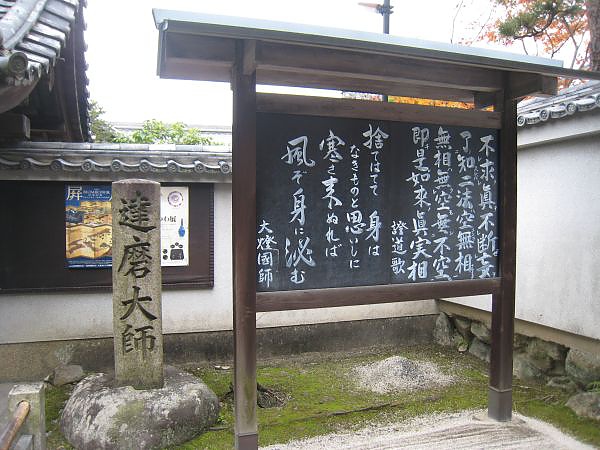 不求真不断妄
了知二法空無相
無相無空無不空
即是如来真実相
證道歌
捨てはてて身は
なきものと思いしに
寒さ来ぬれば
風ぞ身に泌む
大燈國師
達磨大師
屏